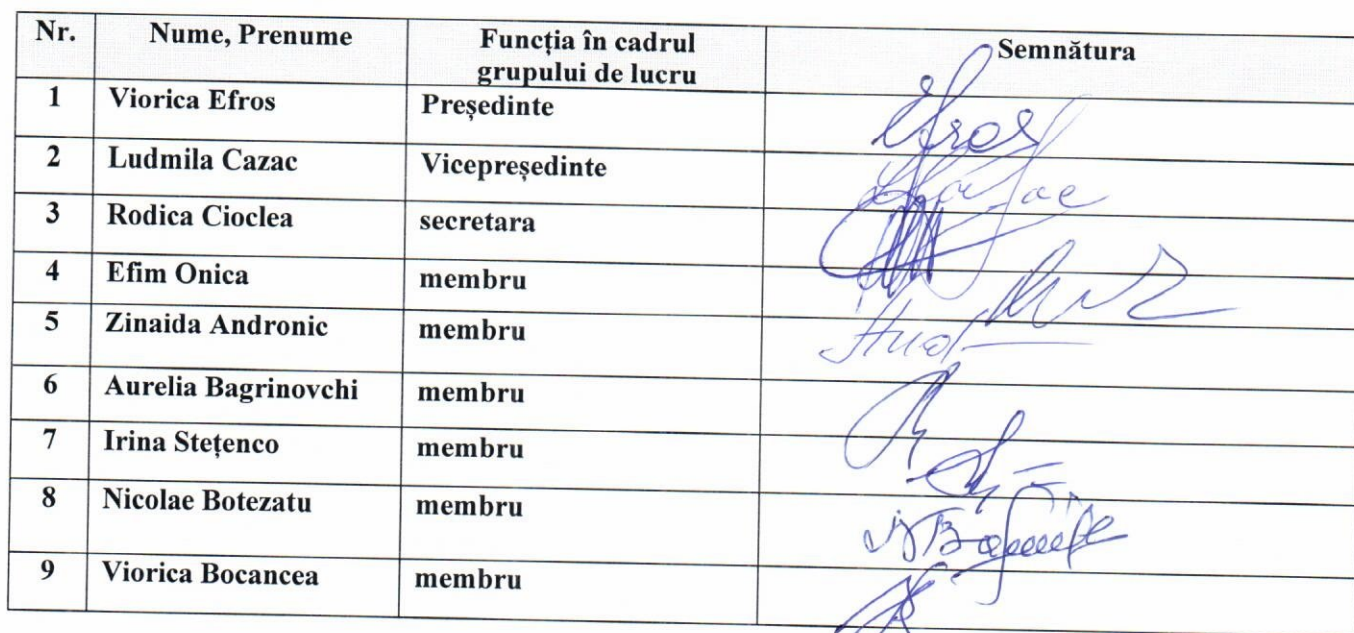 Nr. Nume, Prenume Funcția în cadrul grupului de lucru Semnătura
1 Viorica Efros Președinte
2 Ludmila Cazac Vicepreședinte
3 Rodica Cioclea secretara
4 Efim Onica membru
5 Zinaida Andronic membru
6 Aurelia Bagrinovchi membru
7 Irina Stețenco membru
8 Nicolae Botezatu membru
9 Viorica Bocancea membru